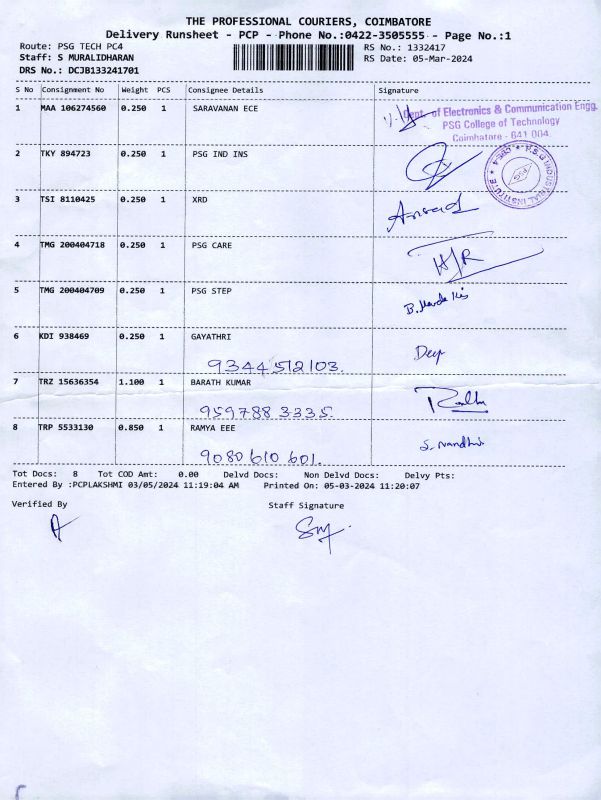 THE PROFESSIONAL COURIERS, COIMBATORE
Delivery Runsheet - PCP - Phone No.:0422-3505555 - Page No.:1
Route: PSG TECH PC4 RS No.: 1332417
Staff: S MURALIDHARAN RS Date: 05-Mar-2024
DRS No.: DCJB133241701
S No Consignment No Weight PCS Consignee Details Signature
1 MAA 106274560 0.250 1 SARAVANAN ECE
Dept. of Electronics & Communication Engg.
PSG College of Technology
Coimbatore - 641 004.
2 TKY 894723 0.250 1 PSG IND INS
P.S.G. INDUSTRIAL INSTITUTE
PSG
3 TSI 8110425 0.250 1 XRD
4 TMG 200404718 0.250 1 PSG CARE
5 TMG 200404709 0.250 1 PSG STEP
6 KDI 938469 0.250 1 GAYATHRI
9344512103. Deep
7 TRZ 15636354 1.100 1 BARATH KUMAR
9597883335.
8 TRP 5533130 0.850 1 RAMYA EEE
9080610601. S. Nandhini
Tot Docs: 8 Tot COD Amt: 0.00 Delvd Docs: Non Delvd Docs: Delvy Pts:
Entered By :PCPLAKSHMI 03/05/2024 11:19:04 AM Printed On: 05-03-2024 11:20:07
Verified By Staff Signature